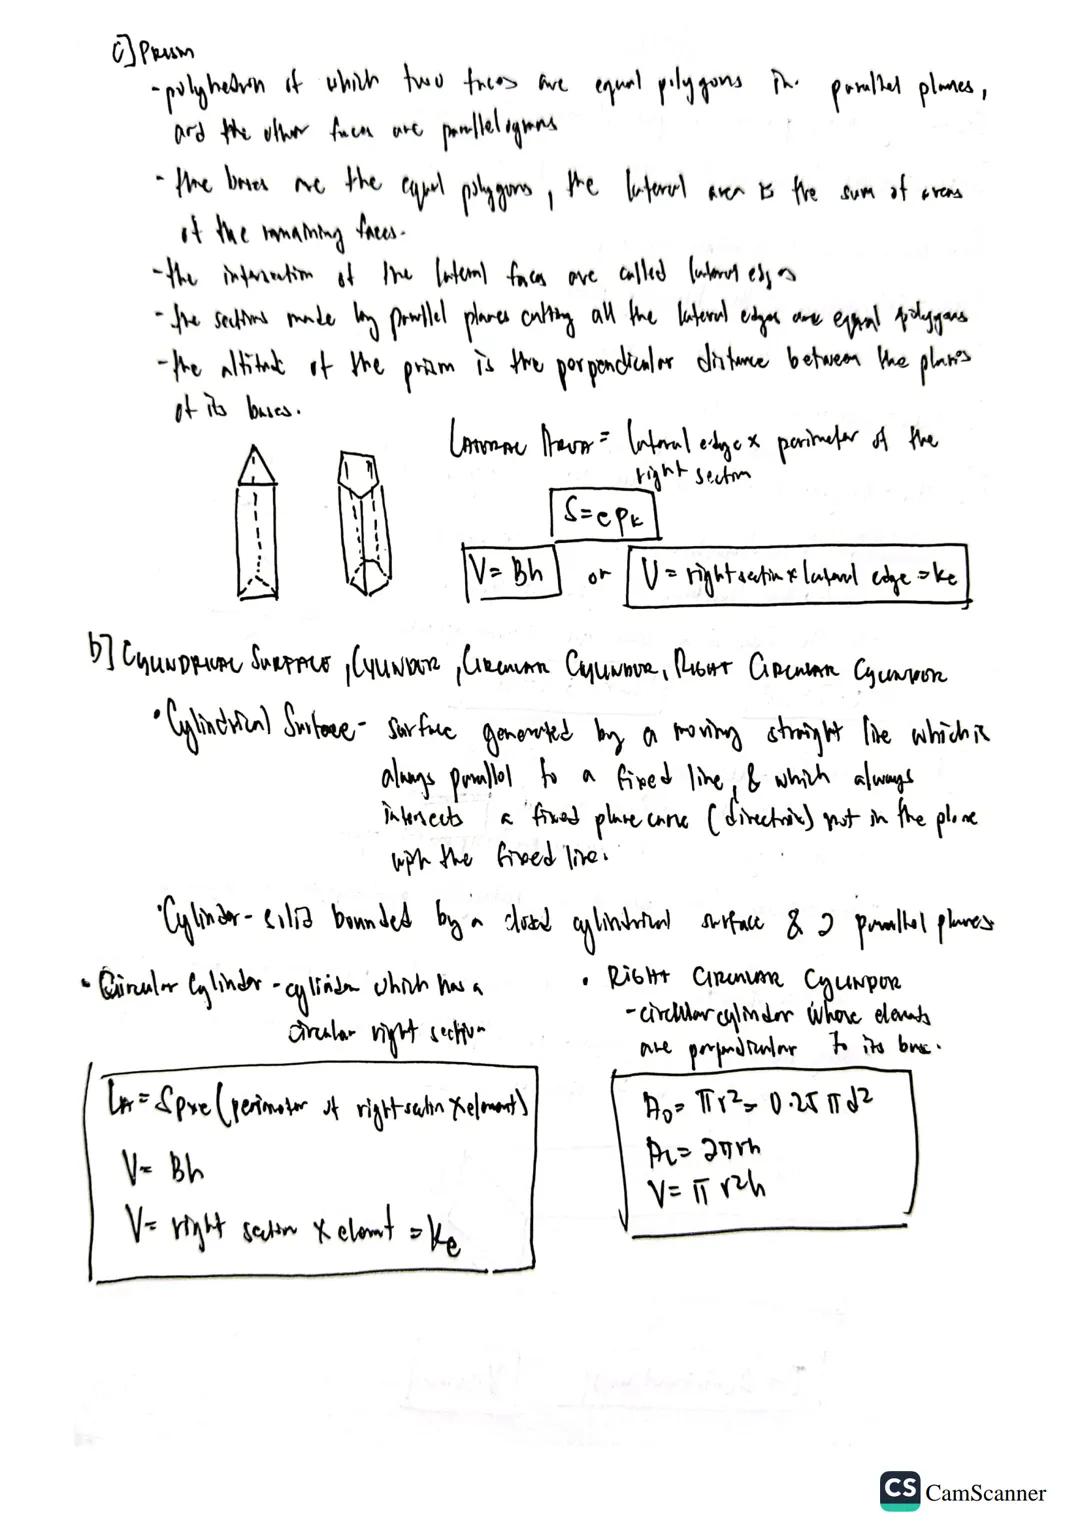 c] Prism
- polyhedron of which two faces are equal polygons in parallel planes,
and the other faces are parallelograms
- the bases are the equal polygons, the lateral area is the sum of areas
of the remaining faces.
- the intersection of the lateral faces are called lateral edges
- the sections made by parallel planes cutting all the lateral edges are equal polygons
- the altitude of the prism is the perpendicular distance between the planes
of its bases.
LATERAL AREA = lateral edge x perimeter of the
right section
S = e Pk
V = Bh or V = right section x lateral edge = ke
b] CYLINDRICAL SURFACE, CYLINDER, CIRCULAR CYLINDER, RIGHT CIRCULAR CYLINDER
• Cylindrical Surface - surface generated by a moving straight line which is
always parallel to a fixed line, & which always
intersects a fixed plane curve (directrix) not in the plane
with the fixed line.
• Cylinder - solid bounded by a closed cylindrical surface & 2 parallel planes
• Circular Cylinder - cylinder which has a
circular right section
LA = Spxe (perimeter of right section x element)
V = Bh
V = right section x element = ke
• RIGHT CIRCULAR CYLINDER
- circular cylinder whose elements
are perpendicular to its base.
A₀ = πr² = 0.25 πd²
AL = 2πrh
V = πr²h
CS CamScanner